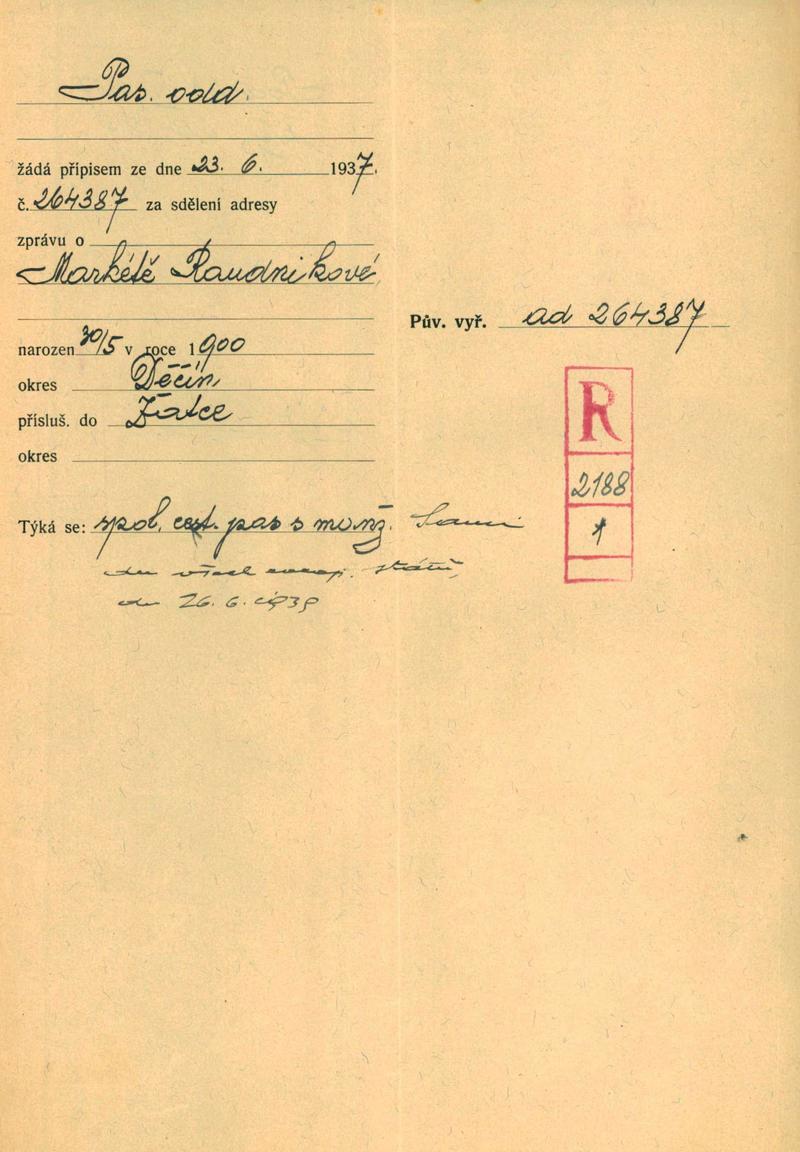 Pas. odd.
žádá přípisem ze dne 23. 6. 1937.
č. 264387 za sdělení adresy
zprávu o
Markétě Raudnikové
Pův. vyř. ad 264387
narozen 30/5 v roce 1900
okres Děčín
přísluš. do Žatce
okres
R
2188
1
Týká se: spol. cest. pas s manž.
všech evrop. států,
26. 6.